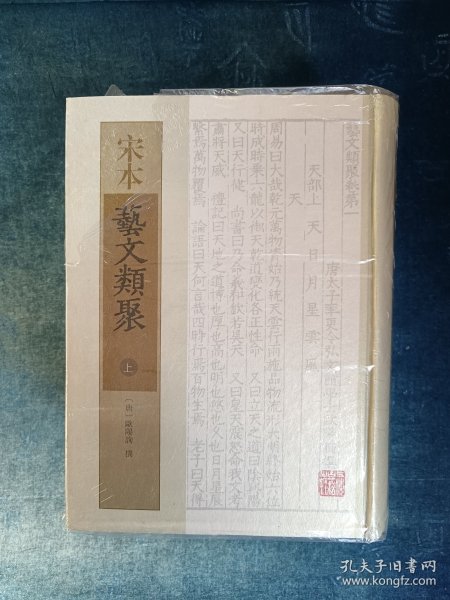 宋本
藝文類聚
上
〔唐〕歐陽詢 撰
藝文類聚卷第一
天部上 天 日 月 星 雲 風
天
周易曰大哉乾元萬物資始乃統天雲行雨施品物流形大明終始六位
時成時乘六龍以御天乾道變化各正性命 又曰立天之道曰陰與陽
又曰天行健 尚書曰乃命羲和欽若昊天 又曰皇天
肅將天威 禮記曰天地之道博也厚也高也明也悠也久也日月星辰
繫焉萬物覆焉 論語曰天何言哉四時行焉百物生焉 老子曰天得
孔夫子旧书网
www.kongfz.com